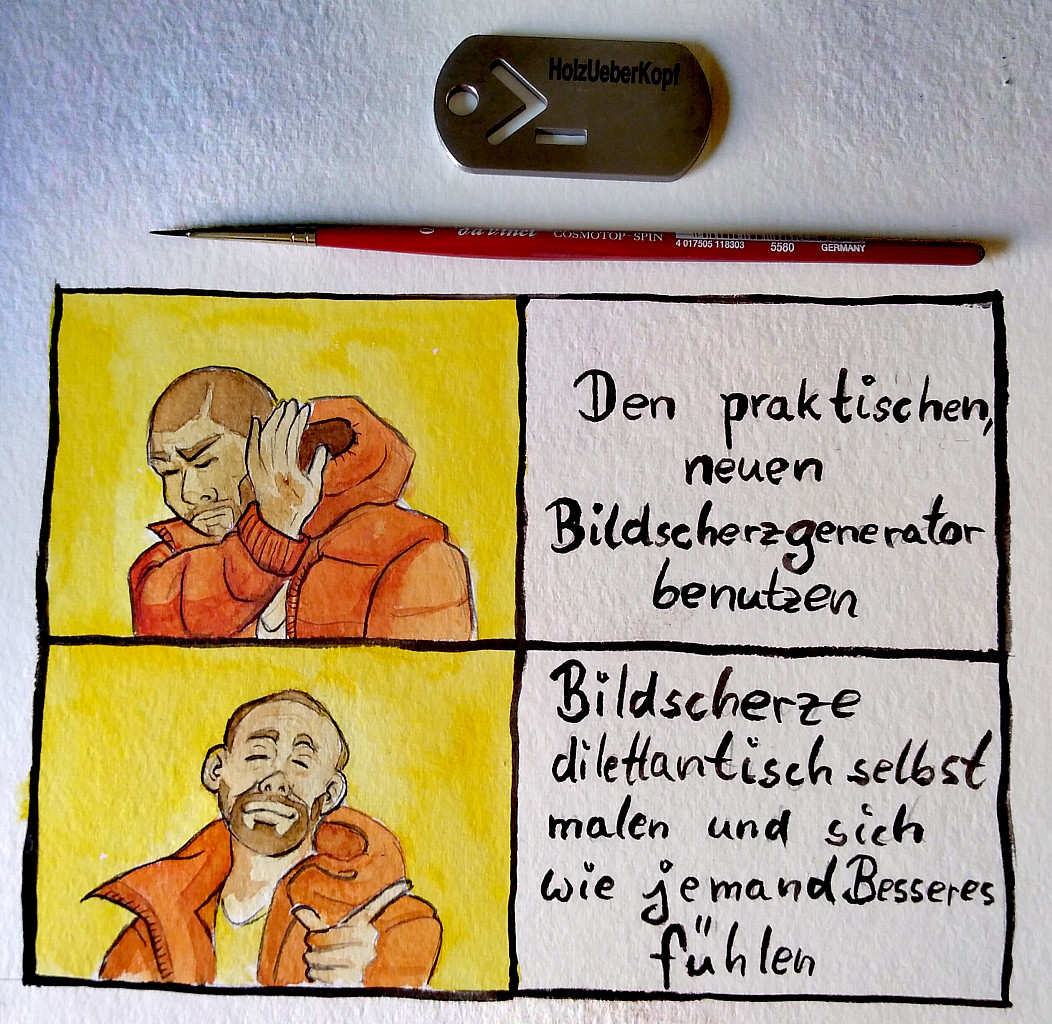 HolzUeberKopf
da Vinci COSMOTOP-SPIN
4 017505 118303 5580 GERMANY
Den praktischen,
neuen
Bildscherzgenerator
benutzen
Bildscherze
dilettantisch selbst
malen und sich
wie jemand Besseres
fühlen